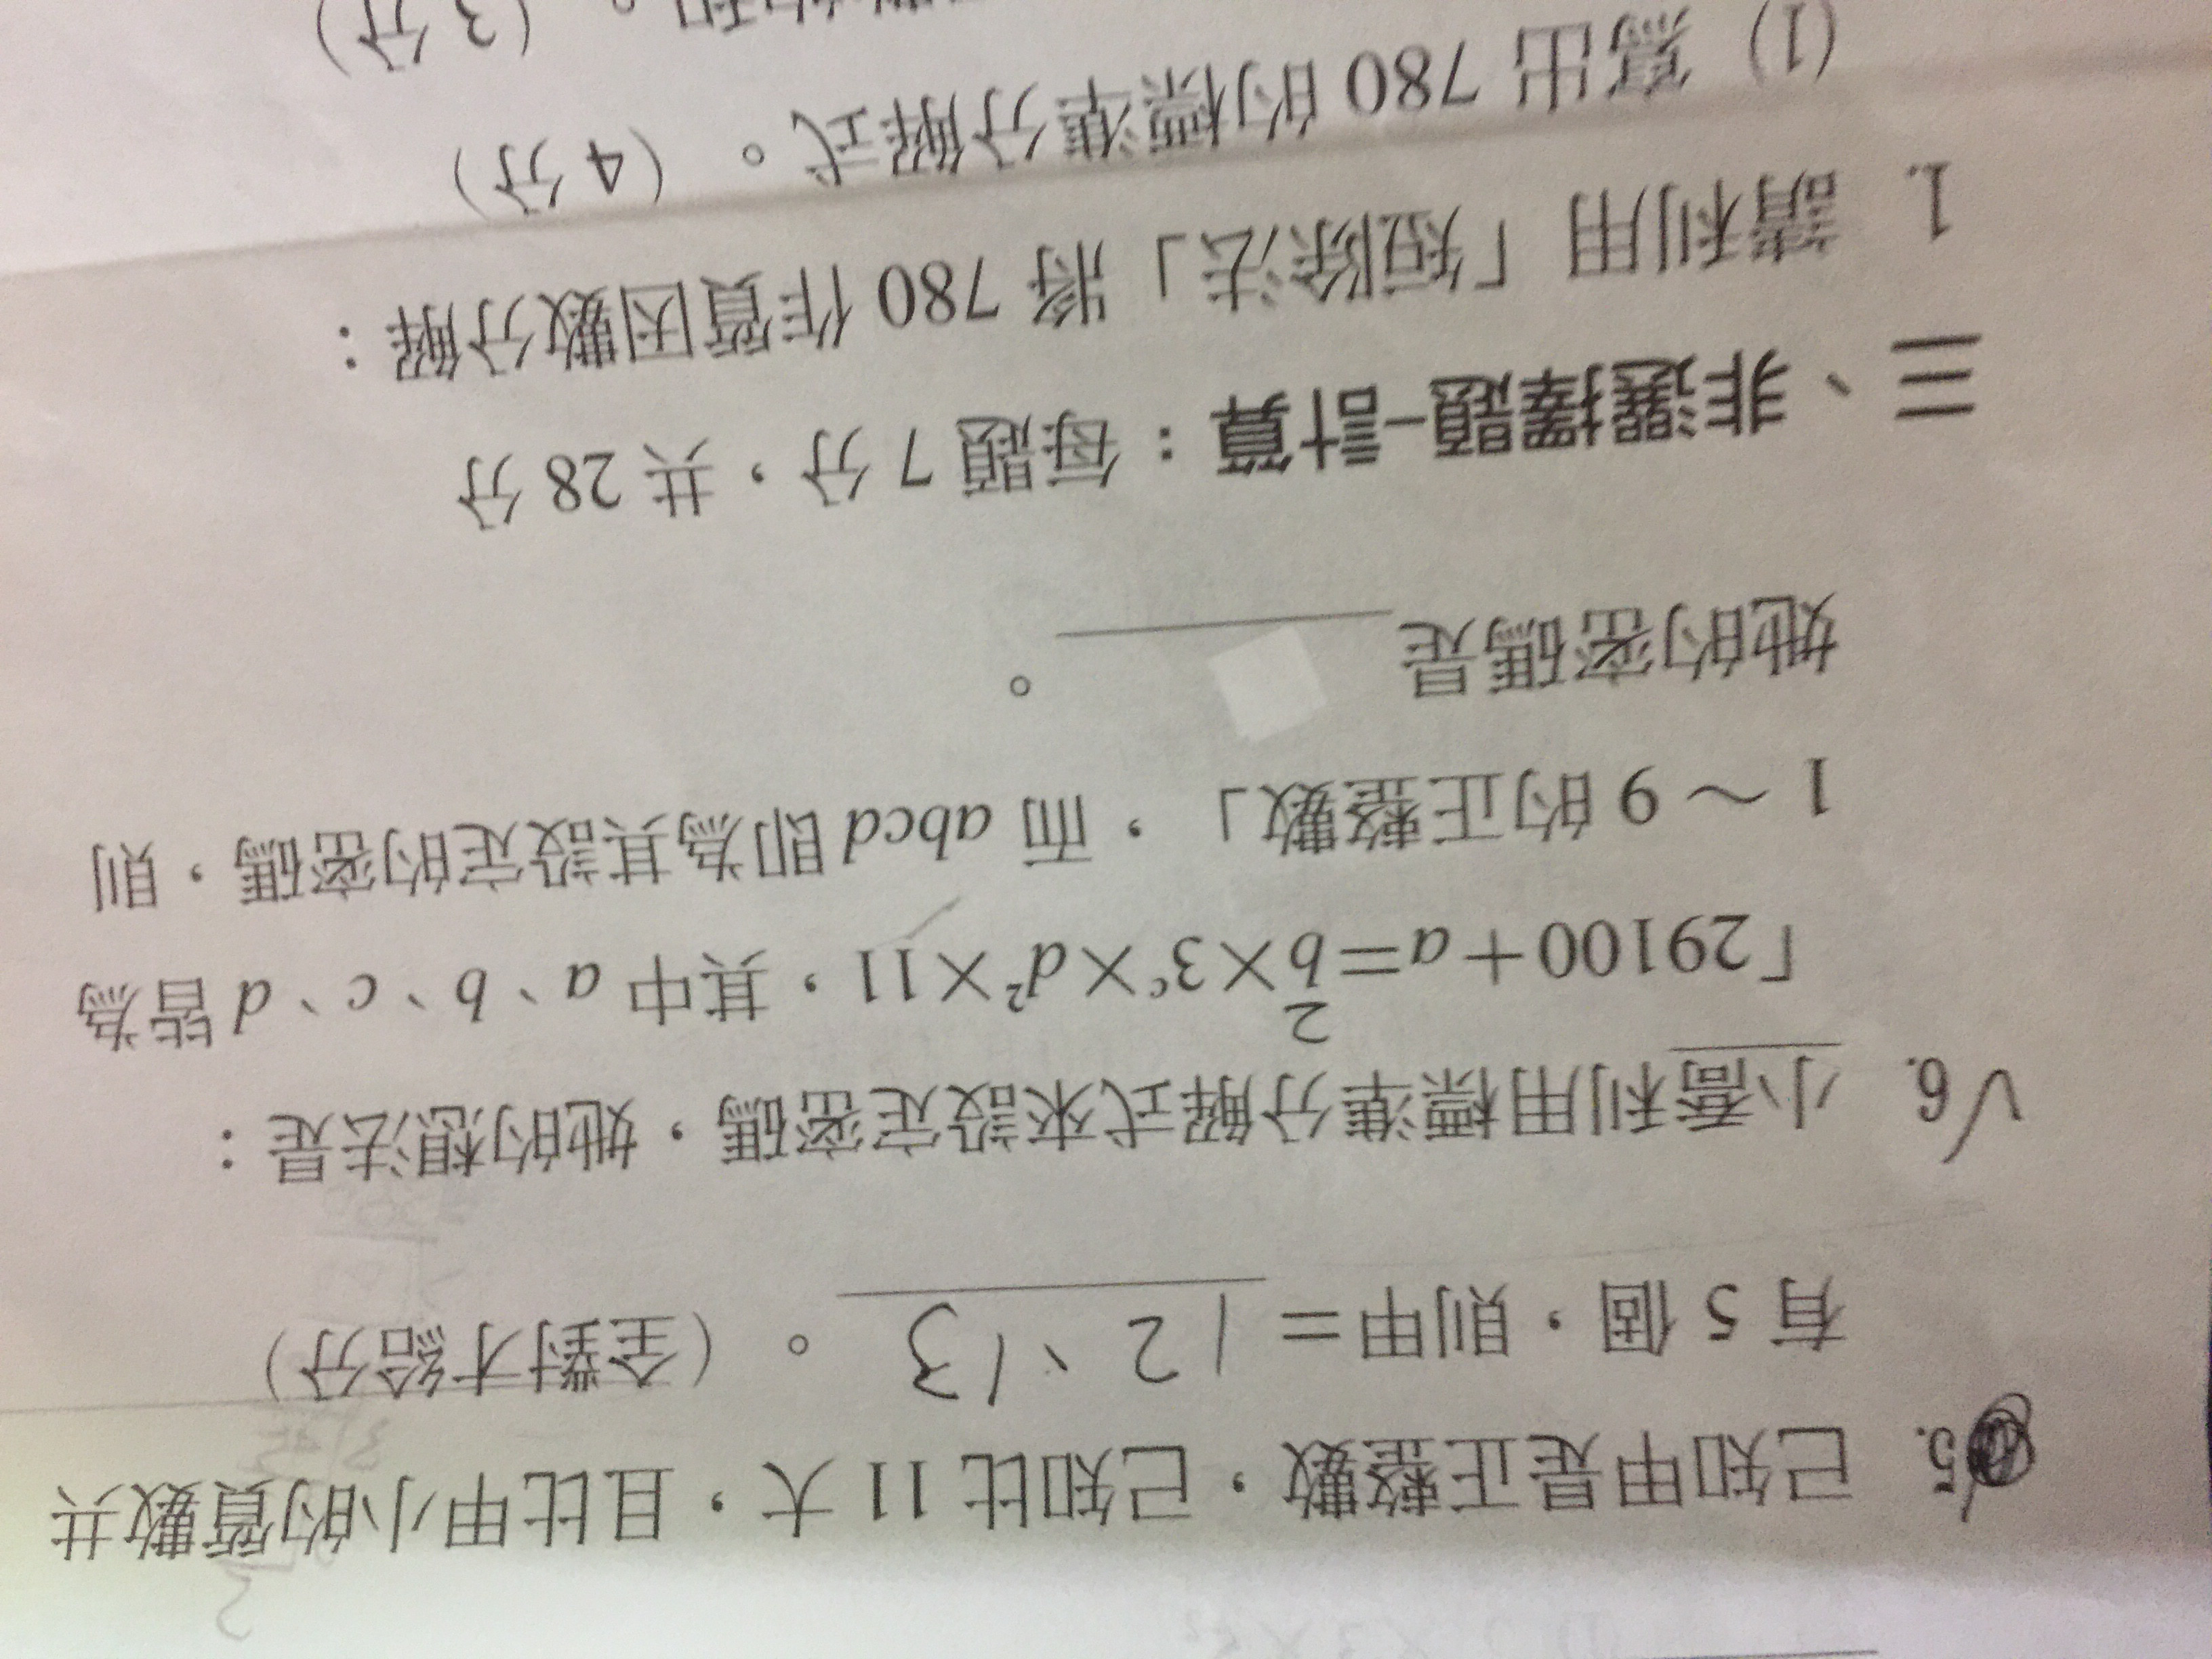 5. 已知甲是正整數，已知比 11 大，且比甲小的質數共
有 5 個，則甲＝ 12、13 。（全對才給分）
6. 小喬利用標準分解式來設定密碼，她的想法是：
2
「29100＋a＝b×3ᶜ×d²×11，其中 a、b、c、d 皆為
1～9 的正整數」，而 abcd 即為其設定的密碼，則
她的密碼是 。
三、非選擇題─計算：每題 7 分，共 28 分
1. 請利用「短除法」將 780 作質因數分解：
(1) 寫出 780 的標準分解式。（4 分）
（3 分）